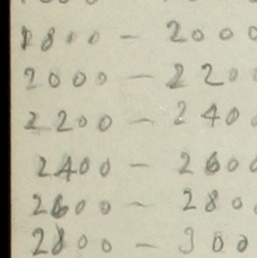 1800 - 2000
2000 - 220
2200 - 240
2400 - 260
2600 - 280
2800 - 300